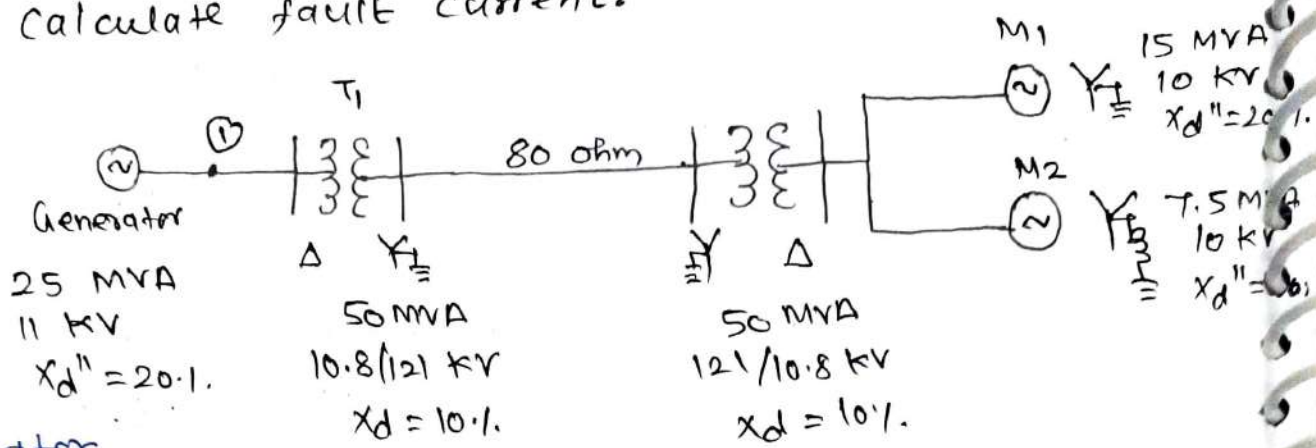 Calculate fault current.
M1
15 MVA
10 KV
Xd"=20%
T1
①
80 ohm
~
~
~
M2
7.5 MVA
10 KV
Xd"=
Generator
Δ
Δ
25 MVA
11 KV
Xd" = 20%.
50 MVA
10.8/121 KV
Xd = 10%.
50 MVA
121/10.8 KV
Xd = 10%.